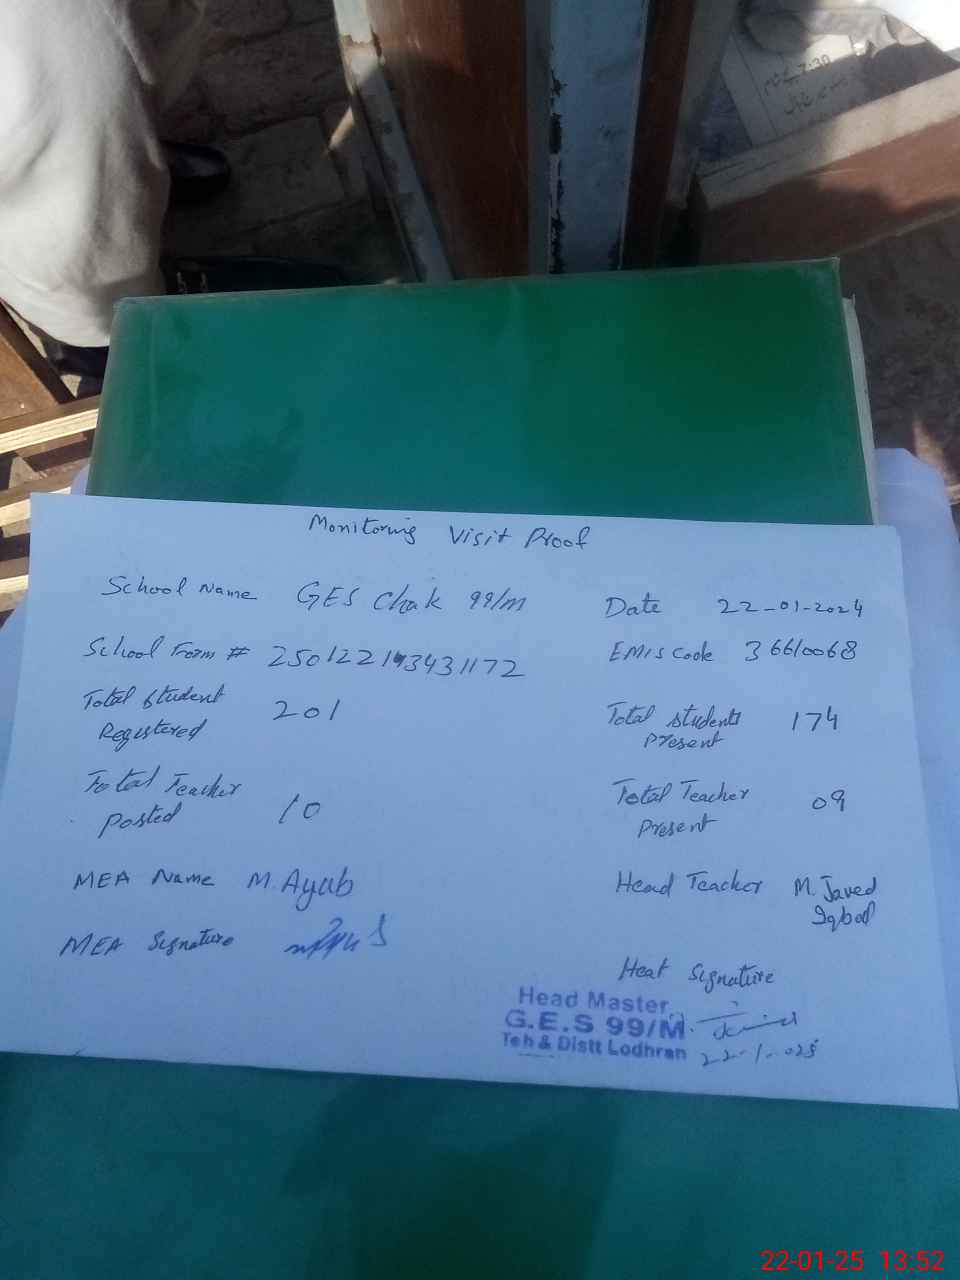 Monitoring Visit Proof
School Name GES Chak 99/M
Date 22-01-2024
School From # 250122143431172
EMIS Code 36610068
Total student Registered 201
Total students Present 174
Total Teacher Posted 10
Total Teacher Present 09
MEA Name M. Ayub
Head Teacher M. Javed Iqbal
MEA Signature
Heat Signature
Head Master
G.E.S 99/M
Teh & Distt Lodhran
22-1-025
22-01-25 13:52